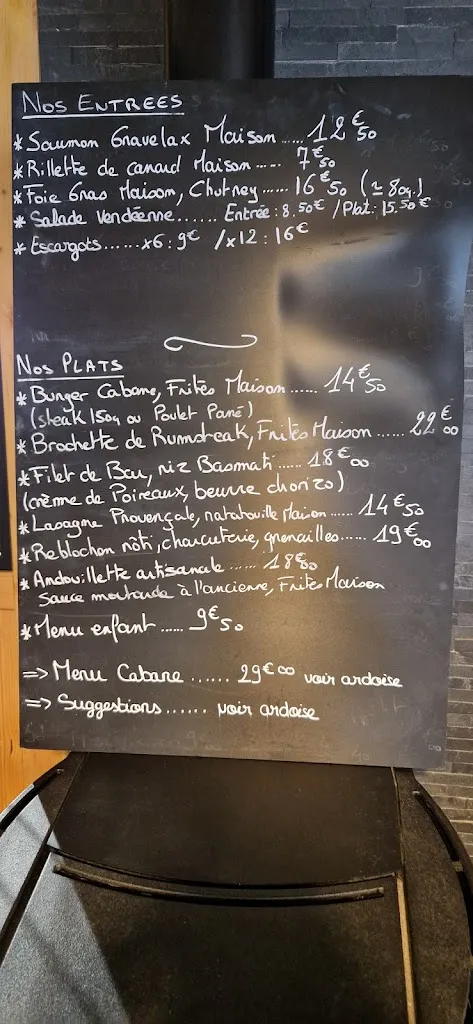 NOS ENTREES
* Saumon Gravelax Maison ...... 12€50
* Rillette de canard Maison ...... 7€50
* Foie Gras Maison, Chutney ...... 16€50 (≃ 80g.)
* Salade Vendéenne ...... Entrée : 8.50€ / Plat : 15.50€
* Escargots ...... x6 : 9€ / x12 : 16€
NOS PLATS
* Burger Cabane, Frites Maison ...... 14€50
(steak 150g ou Poulet Pané)
* Brochette de Rumsteak, Frites Maison ...... 22€00
* Filet de Bar, riz Basmati ...... 18€00
(crème de Poireaux, beurre chorizo)
* Lasagne Provençale, ratatouille Maison ...... 14€50
* Reblochon rôti, charcuterie, grenailles ...... 19€00
* Andouillette artisanale ...... 18€00
Sauce moutarde à l'ancienne, Frites Maison
* Menu enfant ...... 9€50
=> Menu Cabane ...... 29€00 voir ardoise
=> Suggestions ...... voir ardoise